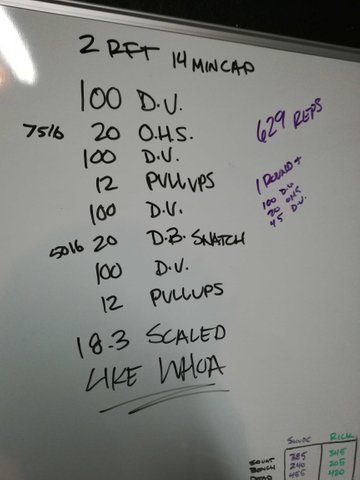 2 RFT 14 MIN CAP
100 D.U.
75lb 20 O.H.S.
100 D.U.
12 PULLUPS
100 D.U.
50lb 20 D.B. SNATCH
100 D.U.
12 PULLUPS
18.3 SCALED
LIKE WHOA
629 REPS
1 ROUND +
100 D.U
20 OHS
45 D.U.
RICK
SQUAT 385 345
BENCH 240 205
DEAD 455 420